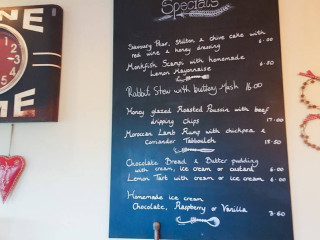 Specials
Savoury Pear, Stilton & chive cake with
red wine & honey dressing
Monkfish Scampi with homemade 6.50
Lemon Mayonnaise
Rabbit Stew with buttery mash 16.00
Honey glazed Roasted Poussin with beef
dripping chips 17.00
Moroccan Lamb Rump with chickpea &
Coriander Tabbouleh 18.50
Chocolate Bread & Butter pudding
with cream, ice cream or custard 6.00
Lemon Tart with cream or ice cream 6.00
Homemade ice cream
Chocolate, Raspberry or Vanilla 3.60
NE
ME